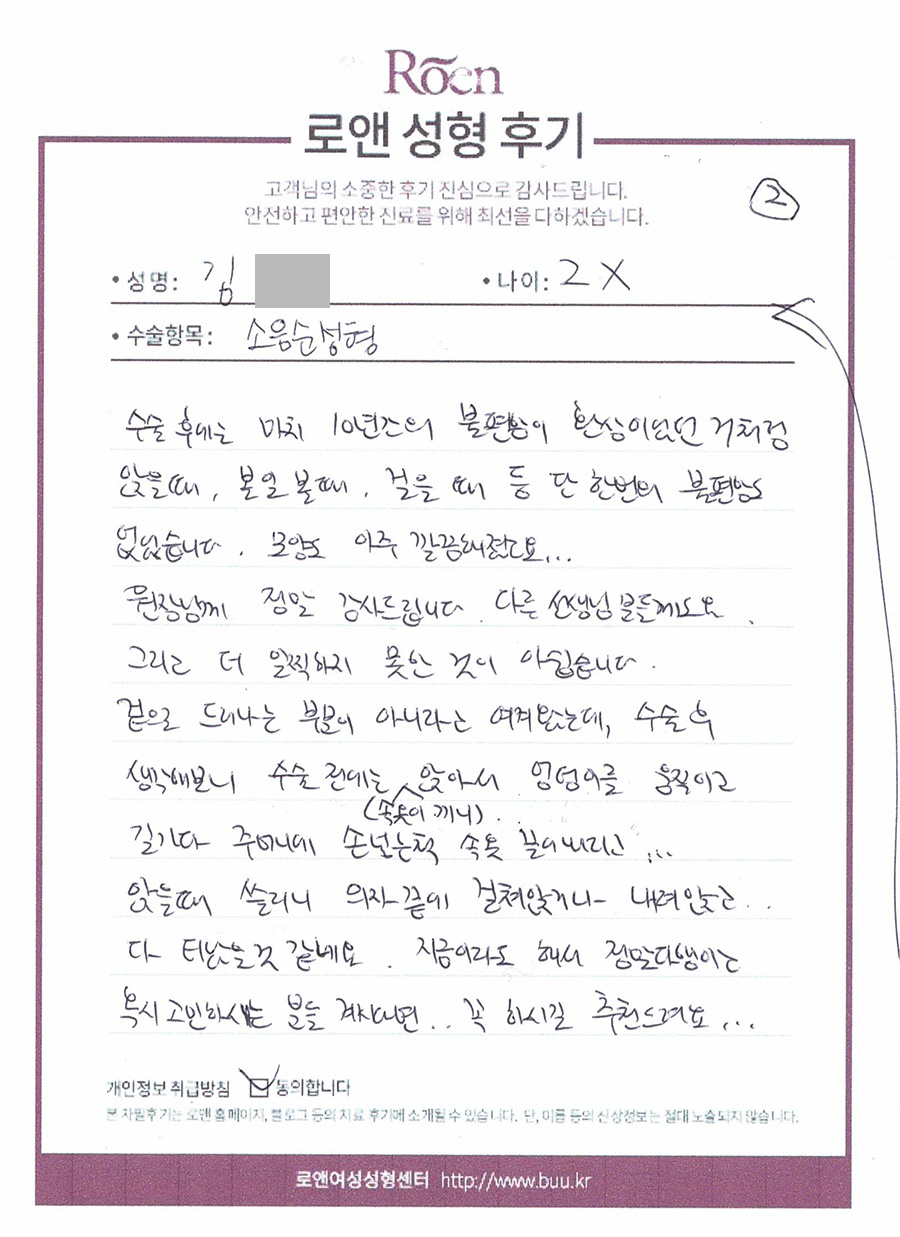 Rōen
로앤 성형 후기
고객님의 소중한 후기 진심으로 감사드립니다.
안전하고 편안한 진료를 위해 최선을 다하겠습니다.
②
• 성명: 김
• 나이: 2X
• 수술항목: 소음순성형
수술 후에는 마치 10년간의 불편함이 환상이었던 거처럼
앉을때, 볼일 볼때, 걸을 때 등 단 한번의 불편함도
없었습니다. 모양도 아주 깔끔해졌고요...
원장님께 정말 감사드립니다 다른 선생님분들께도요.
그리고 더 일찍하지 못한 것이 아쉽습니다.
겉으로 드러나는 부분이 아니라고 여겨왔는데, 수술 후
생각해보니 수술 전에는 앉아서 엉덩이를 움직이고
(속옷이 끼니)
길가다 주머니에 손넣는척 속옷 끌어내리고...
앉을때 쓸리니 의자 끝에 걸쳐앉거나 내려앉고..
다 티났을것 같네요. 지금이라도 해서 정말다행이고
혹시 고민하시는 분들 계시다면.. 꼭 하시길 추천드려요...
개인정보 취급방침 ☑ 동의합니다
본 자필후기는 로앤 홈페이지, 블로그 등의 치료 후기에 소개될 수 있습니다. 단, 이름 등의 신상정보는 절대 노출되지 않습니다.
로앤여성성형센터 http://www.buu.kr